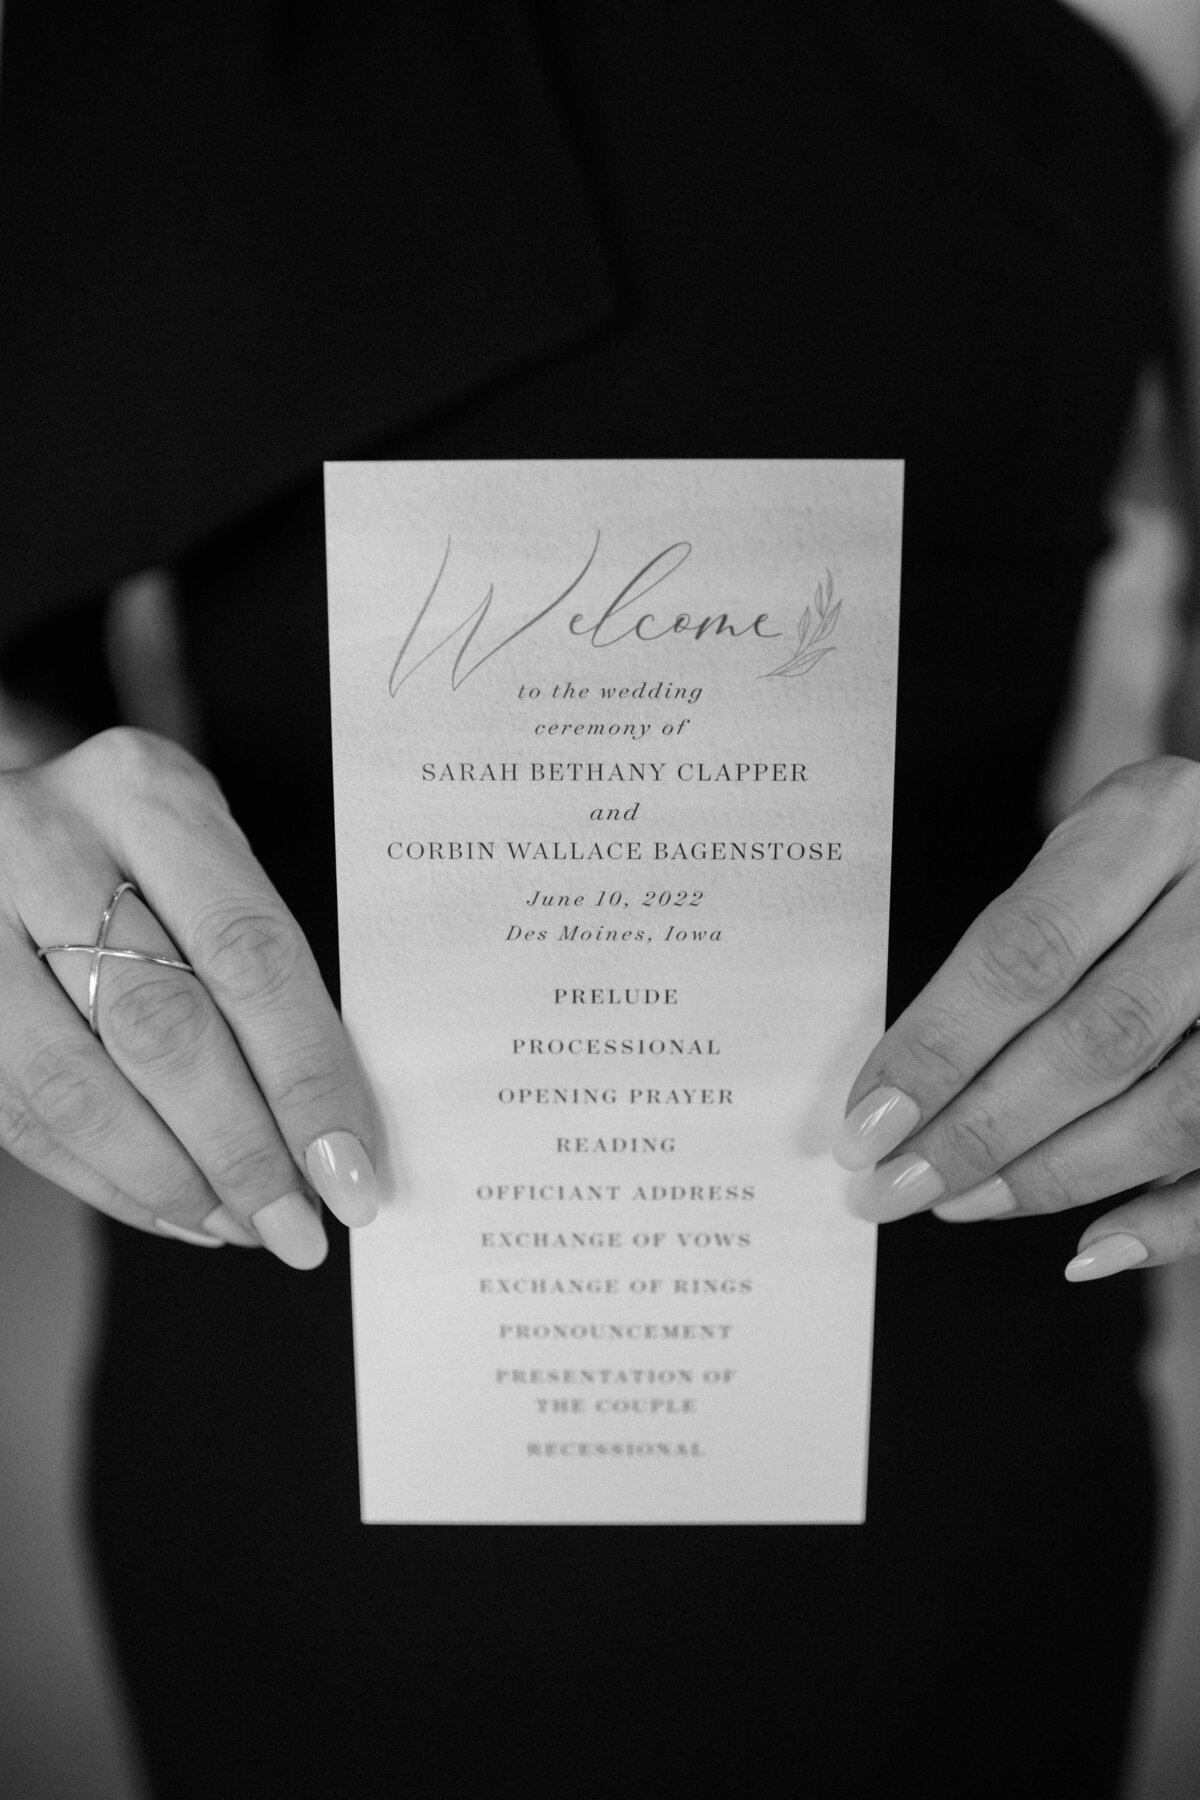 Welcome
to the wedding
ceremony of
SARAH BETHANY CLAPPER
and
CORBIN WALLACE BAGENSTOSE
June 10, 2022
Des Moines, Iowa
PRELUDE
PROCESSIONAL
OPENING PRAYER
READING
OFFICIANT ADDRESS
EXCHANGE OF VOWS
EXCHANGE OF RINGS
PRONOUNCEMENT
PRESENTATION OF
THE COUPLE
RECESSIONAL